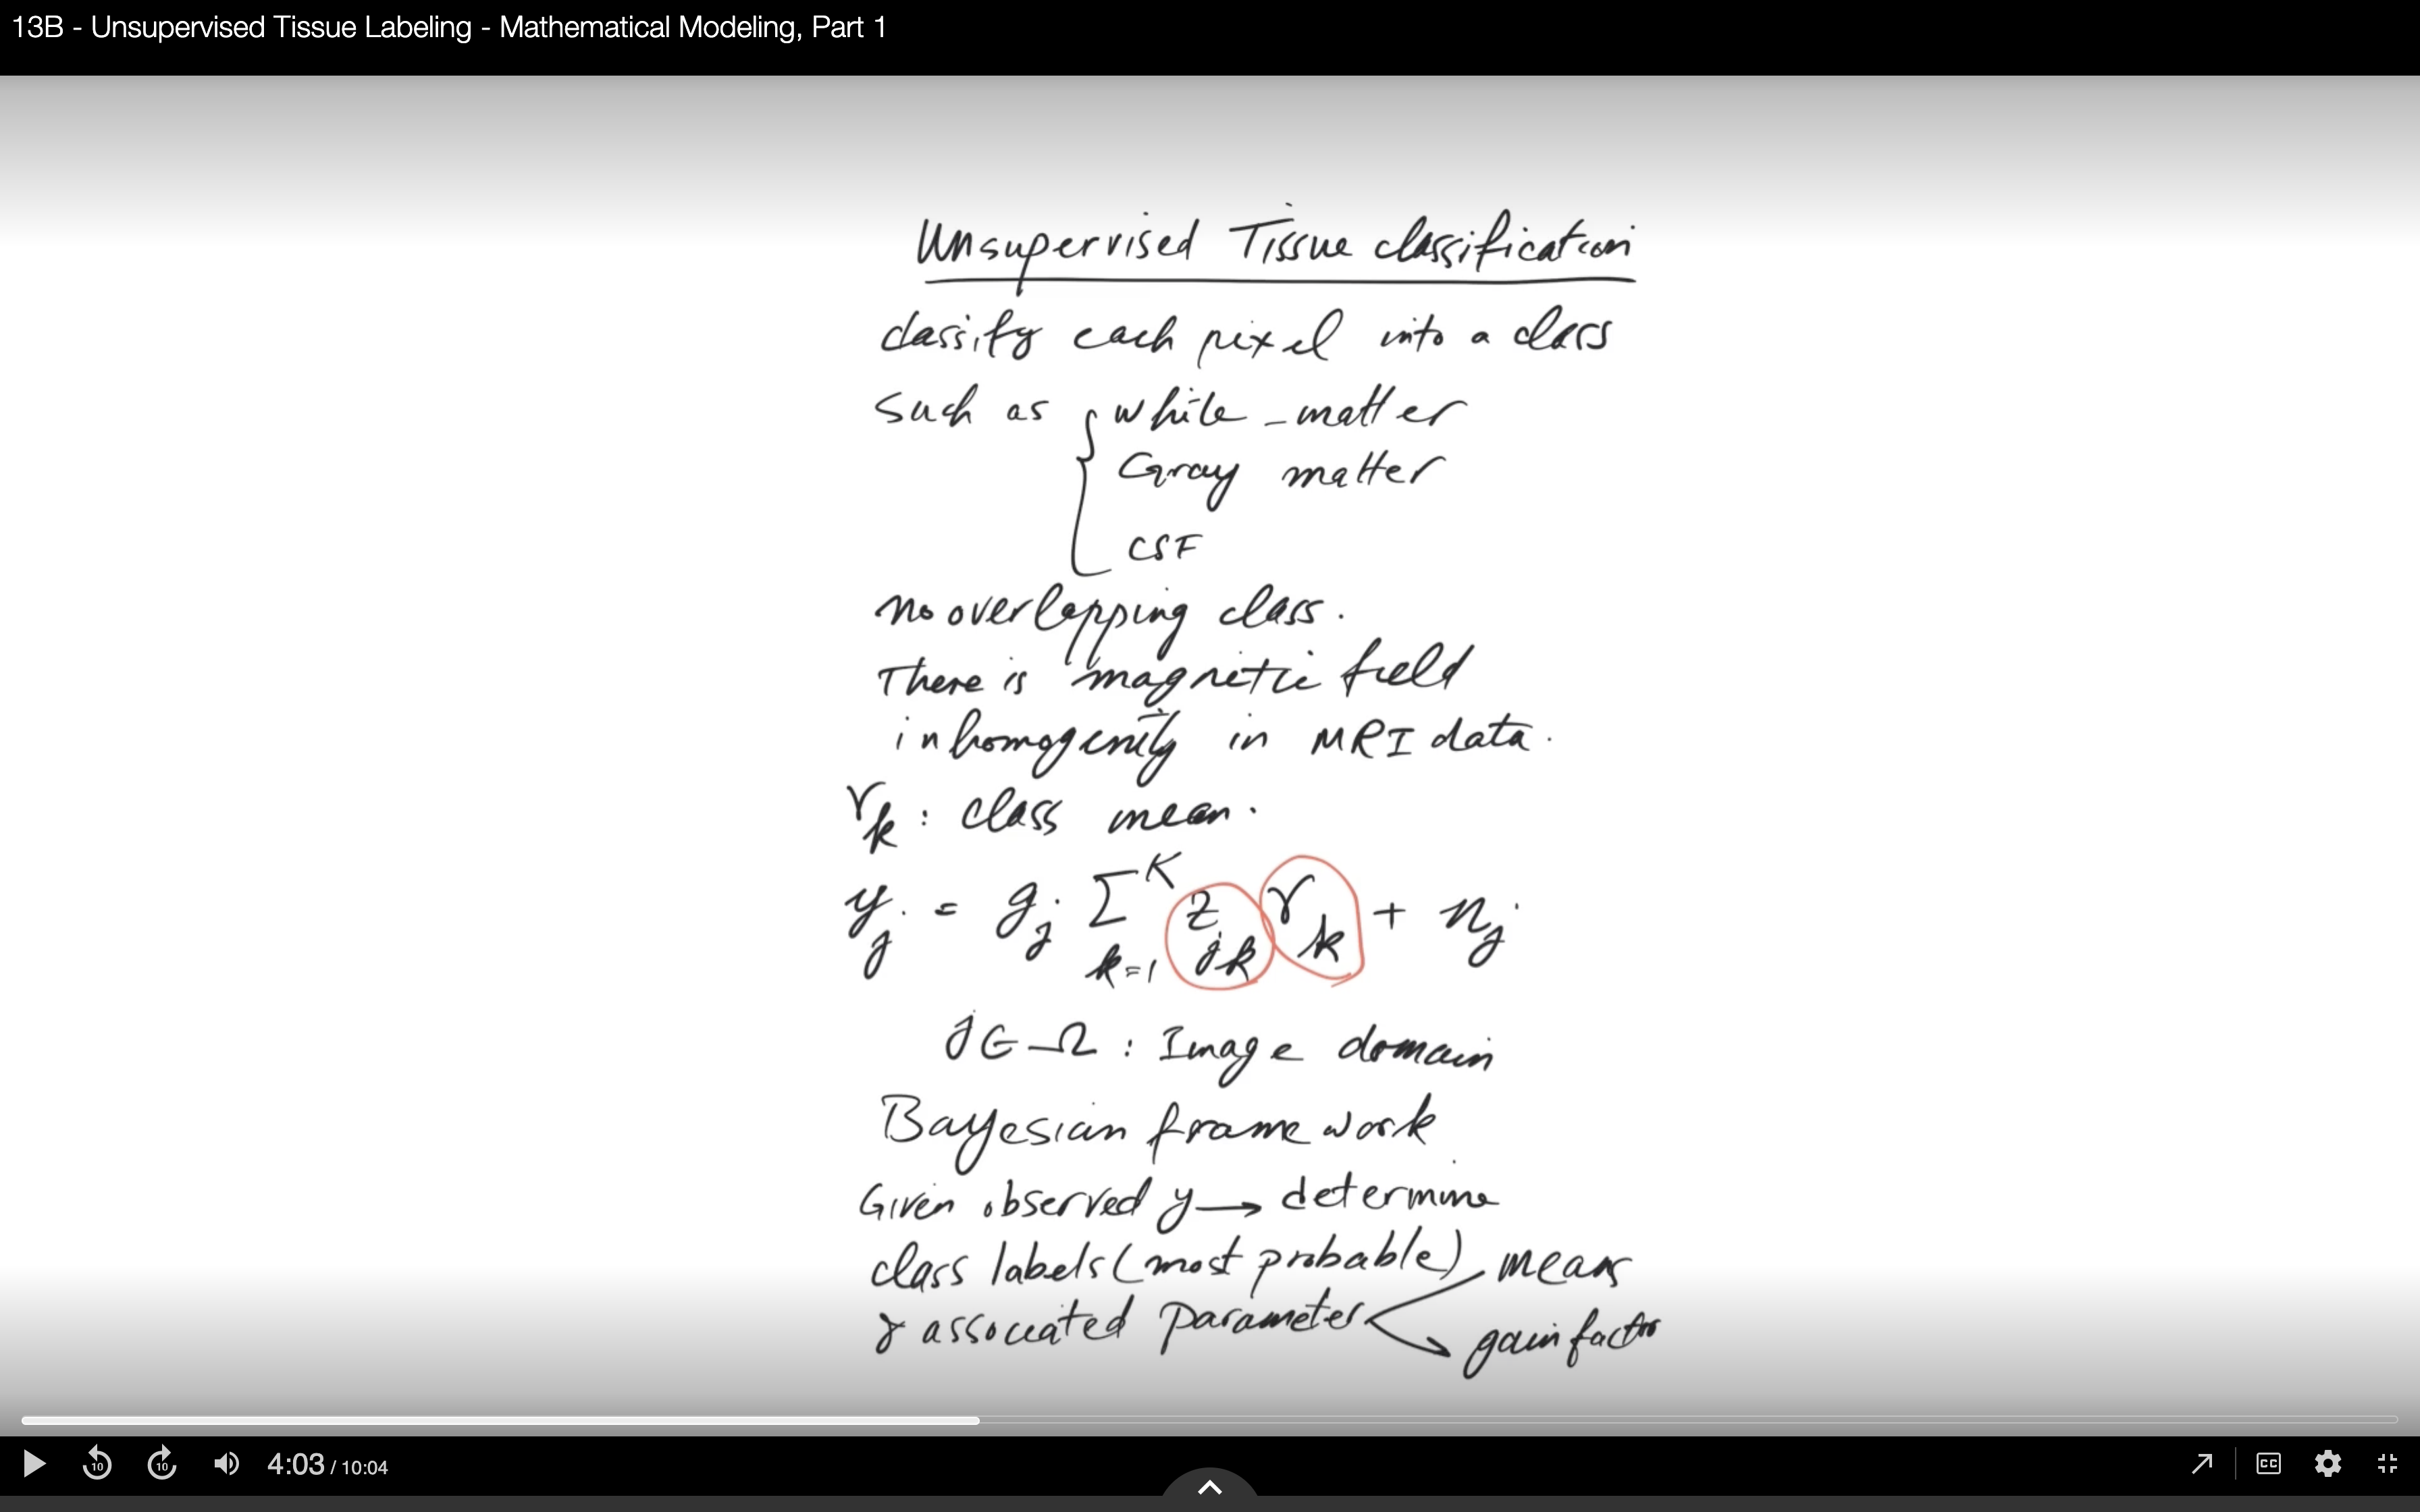 13B - Unsupervised Tissue Labeling - Mathematical Modeling, Part 1
Unsupervised Tissue classification
classify each pixel into a class
such as { white-matter
Gray matter
CSF
no overlapping class.
There is magnetic field
inhomogenity in MRI data.
γ_k : class mean.
y_j = g_j Σ_{k=1}^K z_{jk} γ_k + n_j
j ∈ Ω : Image domain
Bayesian frame work
Given observed y → determine
class labels (most probable) means
& associated parameter gain factor
10 10 4:03 / 10:04 CC